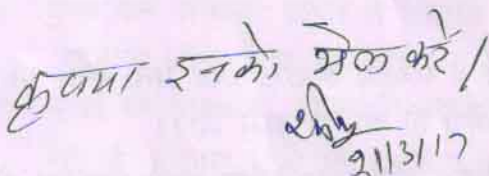 कृपया इनको मेल करें/
21/3/17